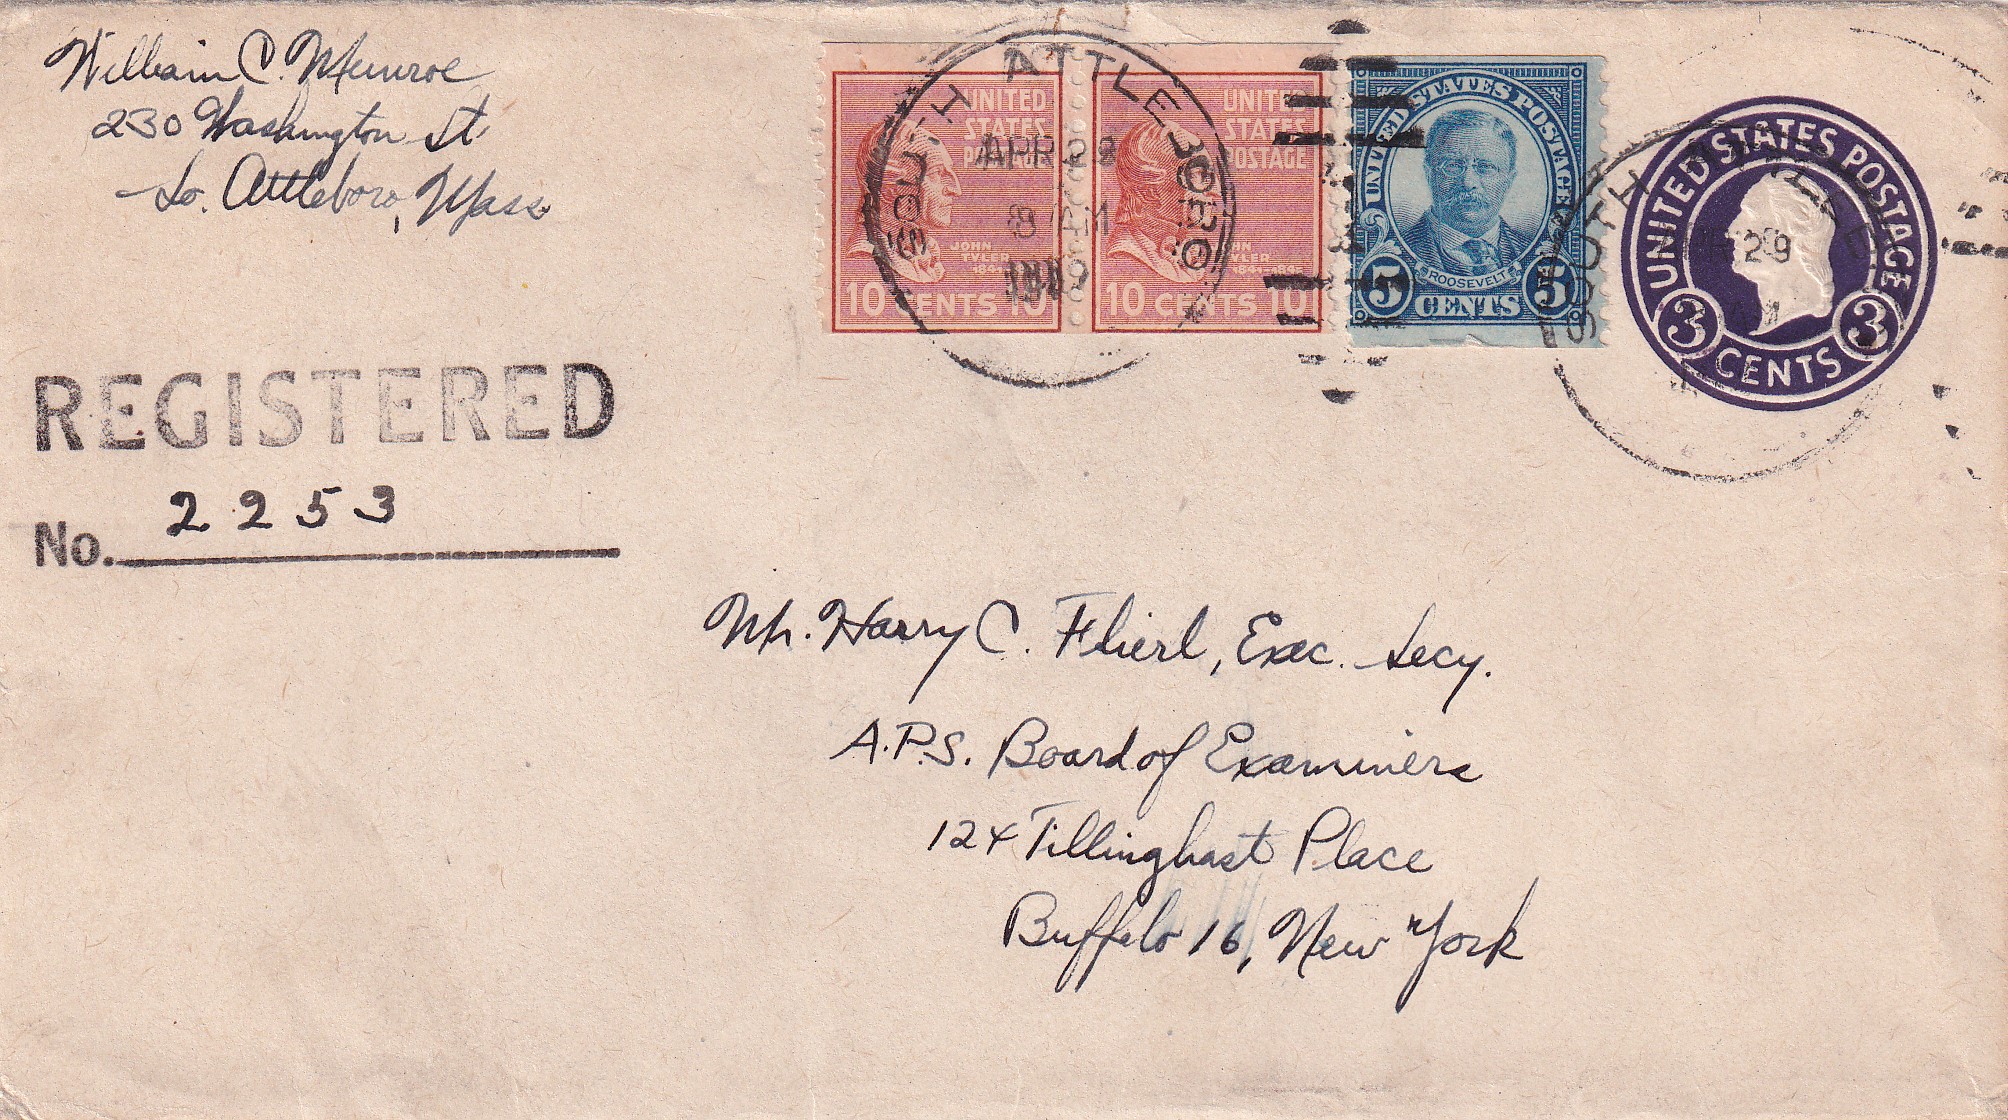 William C. Munroe
230 Washington St.
So. Attleboro, Mass
REGISTERED
No. 2253
SOUTH ATTLEBORO
APR 29
8 AM
UNITED
STATES
POSTAGE
JOHN
TYLER
10 CENTS 10
UNITED
STATES
POSTAGE
JOHN
TYLER
10 CENTS 10
UNITED STATES POSTAGE
ROOSEVELT
5 CENTS 5
UNITED STATES POSTAGE
3 CENTS 3
SOUTH
29
Mr. Harry C. Flierl, Exec. Secy.
A.P.S. Board of Examiners
124 Tillinghast Place
Buffalo 16, New York